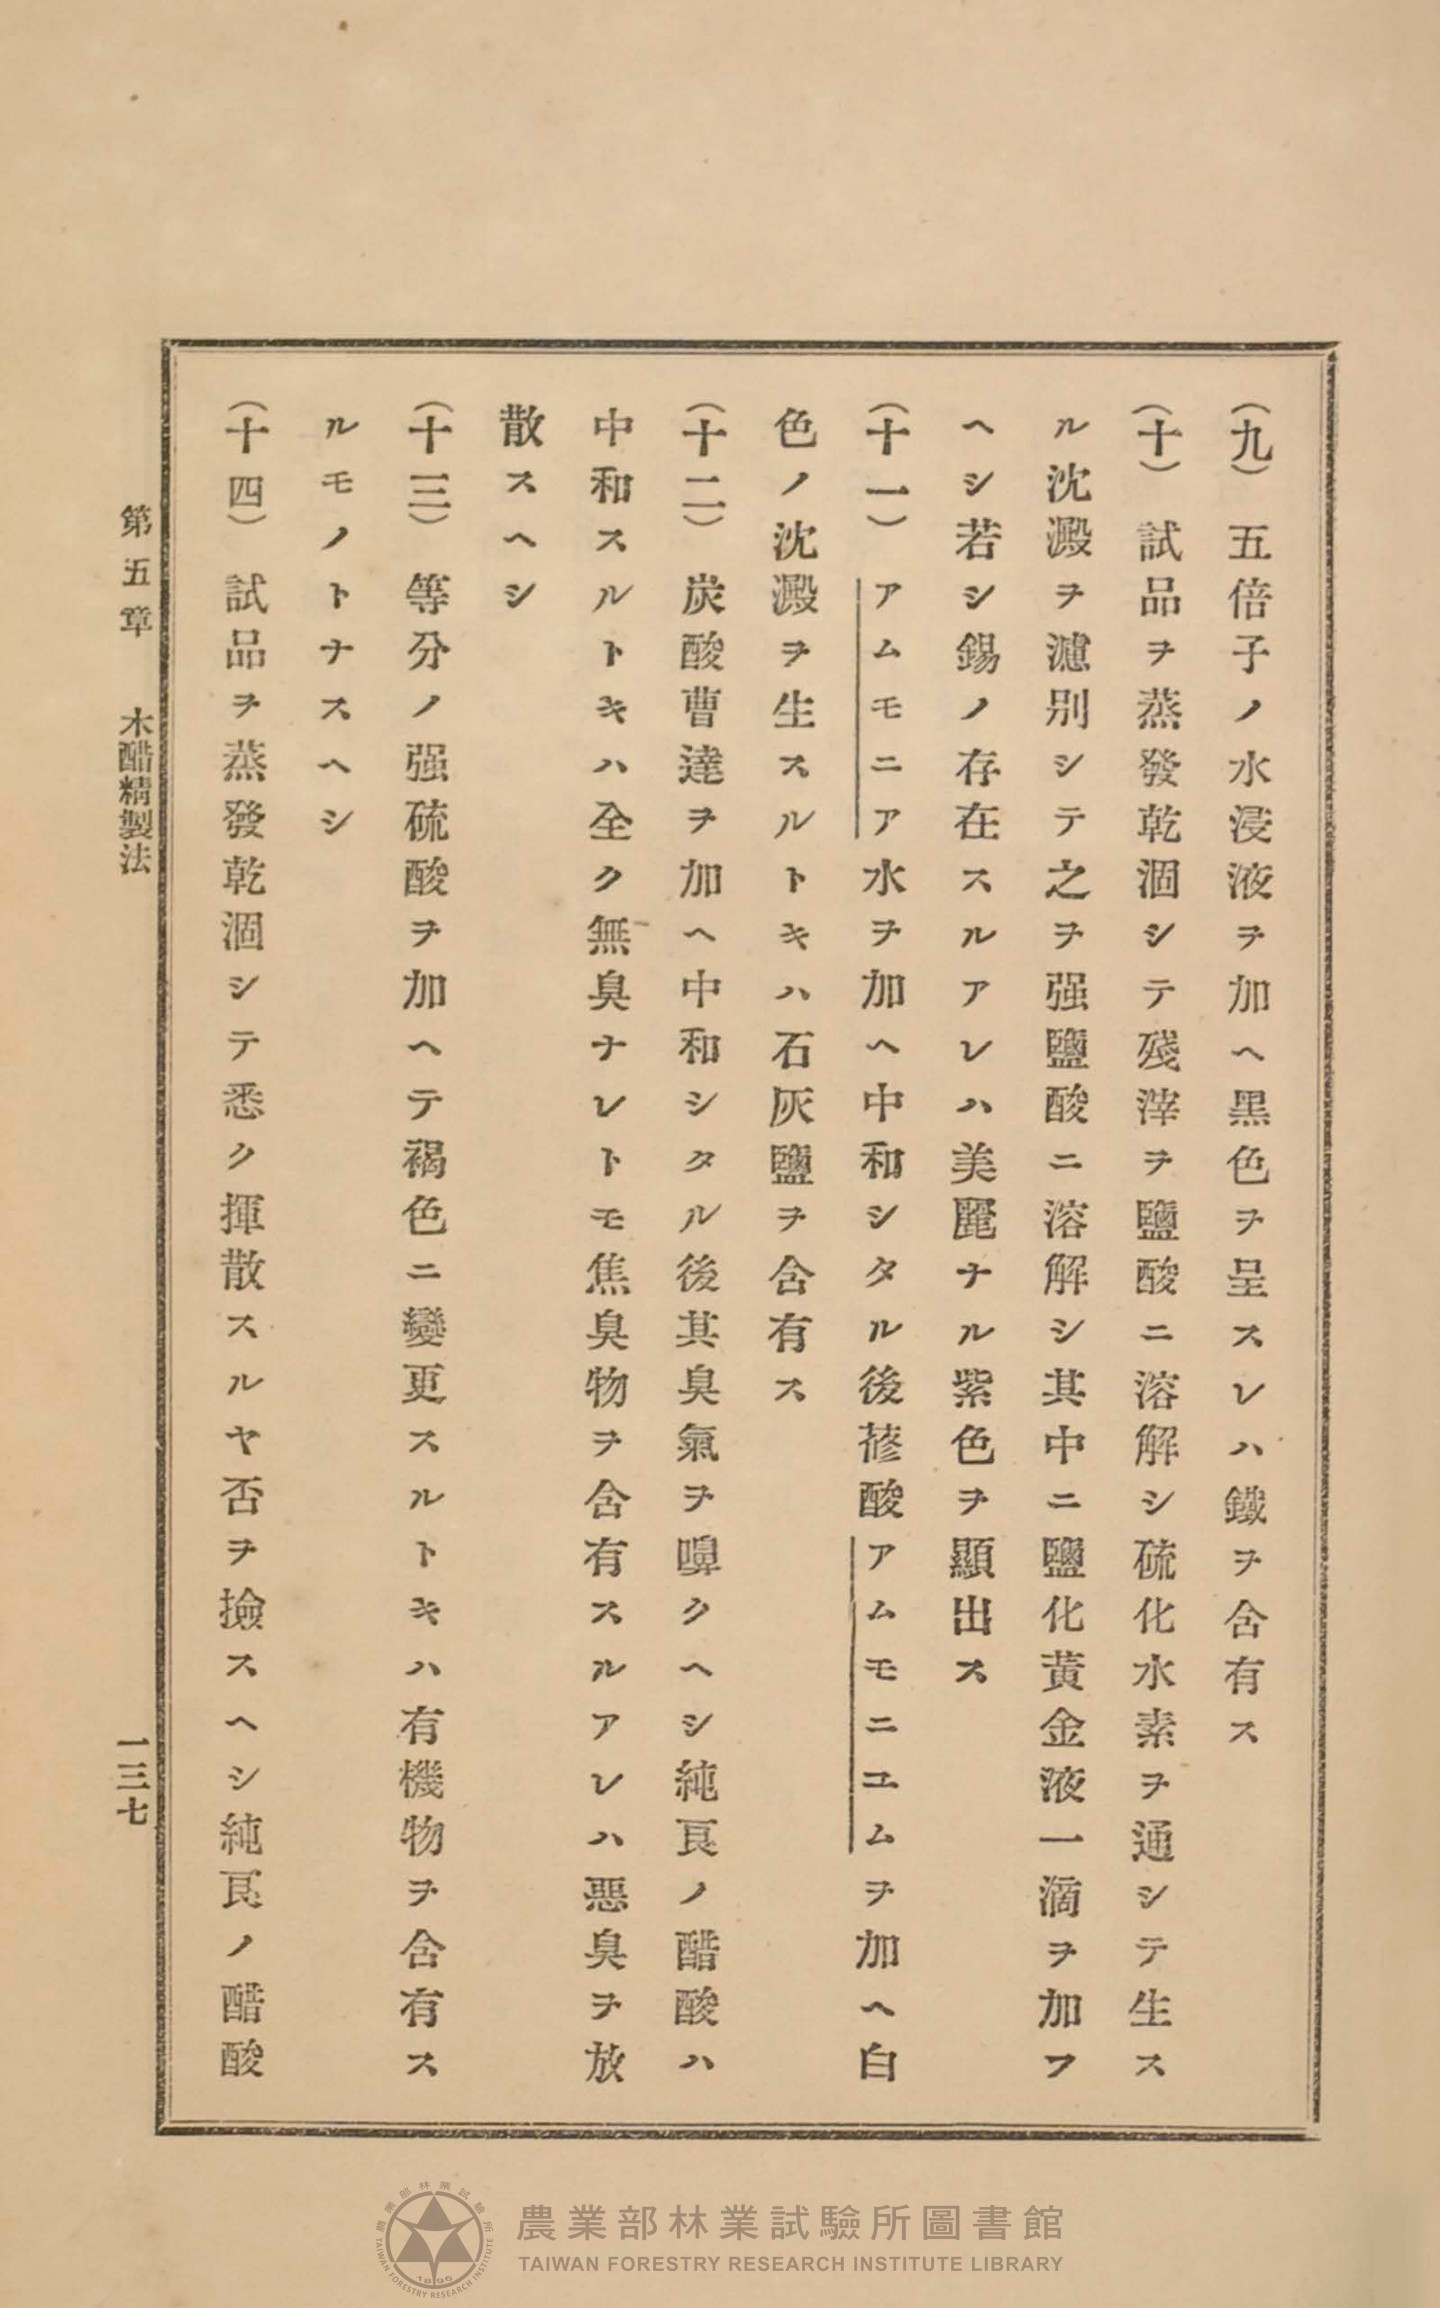 (九) 五倍子ノ水浸液ヲ加ヘ黑色ヲ呈スレハ鐵ヲ含有ス
(十) 試品ヲ蒸發乾涸シテ殘滓ヲ鹽酸ニ溶解シ硫化水素ヲ通シテ生ス
ル沈澱ヲ濾別シテ之ヲ强鹽酸ニ溶解シ其中ニ鹽化黃金液一滴ヲ加フ
ヘシ若シ錫ノ存在スルアレハ美麗ナル紫色ヲ顯出ス
(十一) アムモニア水ヲ加ヘ中和シタル後蓚酸アムモニユムヲ加ヘ白
色ノ沈澱ヲ生スルトキハ石灰鹽ヲ含有ス
(十二) 炭酸曹達ヲ加ヘ中和シタル後其臭氣ヲ嗅クヘシ純良ノ醋酸ハ
中和スルトキハ全ク無臭ナレトモ焦臭物ヲ含有スルアレハ惡臭ヲ放
散スヘシ
(十三) 等分ノ强硫酸ヲ加ヘテ褐色ニ變更スルトキハ有機物ヲ含有ス
ルモノトナスヘシ
(十四) 試品ヲ蒸發乾涸シテ悉ク揮散スルヤ否ヲ撿スヘシ純良ノ醋酸
第五章 木醋精製法 一三七
農業部林業試驗所圖書館
TAIWAN FORESTRY RESEARCH INSTITUTE LIBRARY
農業部林業試驗所
TAIWAN FORESTRY RESEARCH INSTITUTE
1896